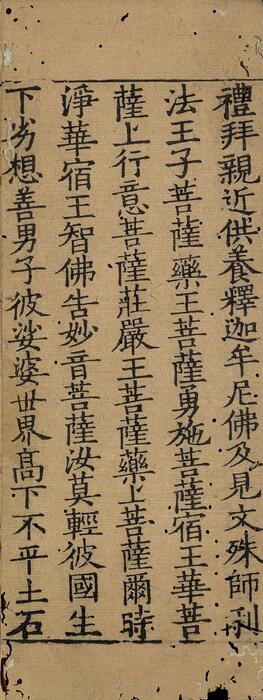 禮拜親近供養釋迦牟尼佛及見文殊師利
法王子菩薩藥王菩薩勇施菩薩宿王華菩
薩上行意菩薩莊嚴王菩薩藥上菩薩爾時
淨華宿王智佛告妙音菩薩汝莫輕彼國生
下劣想善男子彼娑婆世界高下不平土石